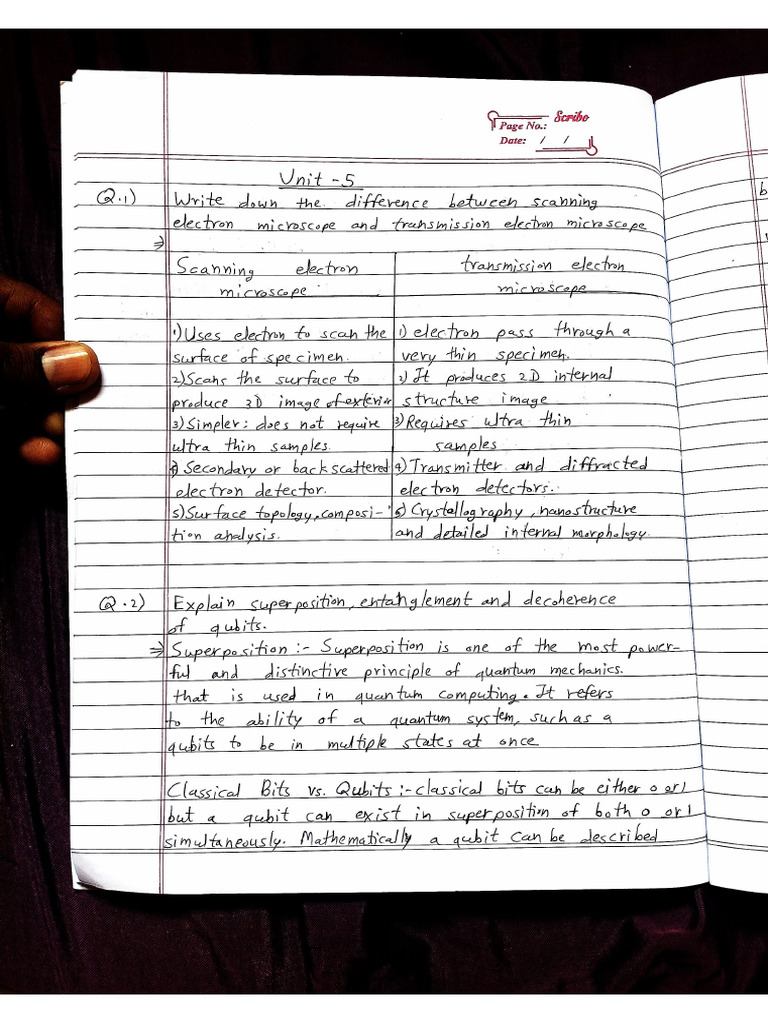 Scribo
Page No.:
Date: / /
Unit - 5
Q.1) Write down the difference between scanning
electron microscope and transmission electron microscope
⇒
Scanning electron
microscope
transmission electron
microscope
1) Uses electron to scan the
surface of specimen.
2) Scans the surface to
produce 3D image of exterior
3) Simpler: does not require
ultra thin samples.
4) Secondary or back scattered
electron detector.
5) Surface topology, composi-
tion analysis.
1) electron pass through a
very thin specimen.
2) It produces 2D internal
structure image
3) Requires ultra thin
samples
4) Transmitter and diffracted
electron detectors.
5) Crystallography, nanostructure
and detailed internal morphology.
Q.2) Explain superposition, entanglement and decoherence
of qubits.
⇒ Superposition :- Superposition is one of the most power-
ful and distinctive principle of quantum mechanics.
that is used in quantum computing. It refers
to the ability of a quantum system, such as a
qubits to be in multiple states at once
Classical Bits vs. Qubits :- classical bits can be either 0 or 1
but a qubit can exist in superposition of both 0 or 1
simultaneously. Mathematically a qubit can be described
b